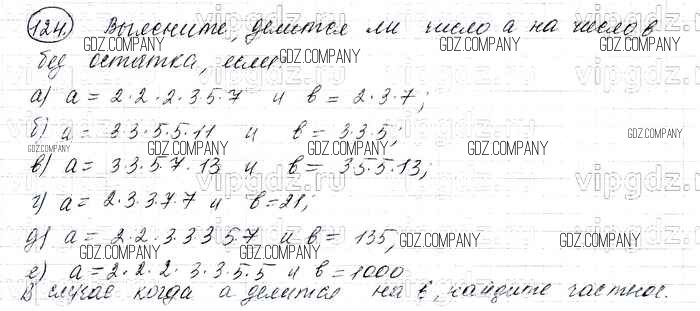 124. Выясните, делится ли число а на число в
без остатка, если
а) а = 2·2·2·3·5·7 и в = 2·3·7;
б) а = 3·3·5·5·11 и в = 3·3·5;
в) а = 3·3·5·7·13 и в = 3·5·5·13;
г) а = 2·3·3·7·7 и в=21;
д) а = 2·2·3·3·3·5·7 и в = 135;
е) а = 2·2·2·3·3·5·5 и в = 1000
В случае когда а делится на в, найдите частное.
GDZ.COMPANY
vipgdz.ru